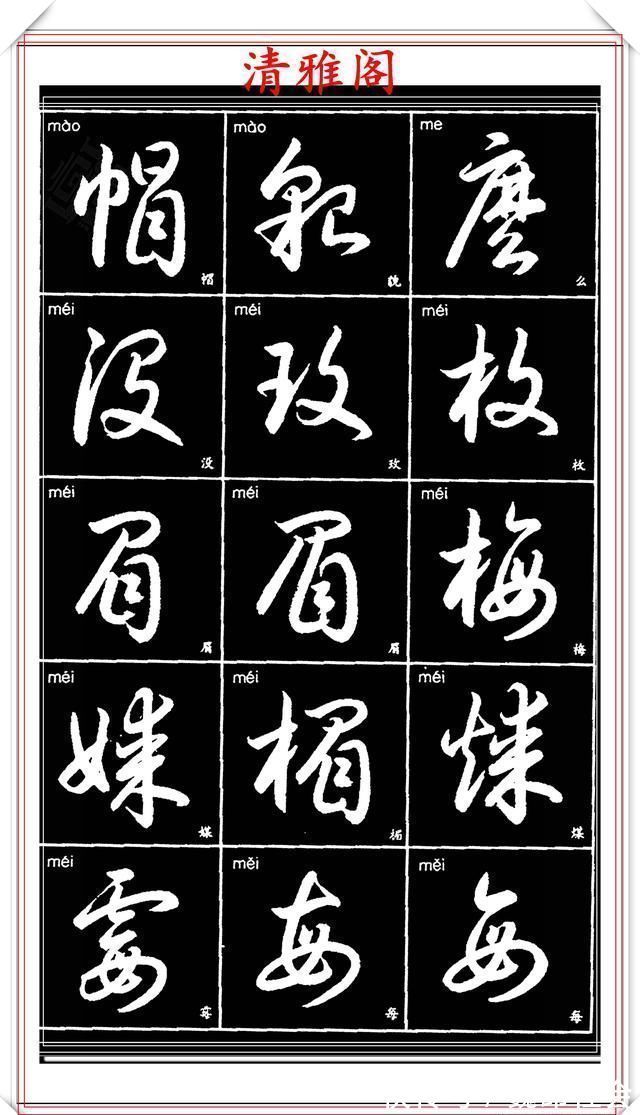 清雅阁
mào mào me
帽 皃 麼
帽 貌 么
méi méi méi
没 玫 枚
没 玫 枚
méi méi méi
眉 眉 梅
眉 眉 梅
méi méi méi
媒 楣 煤
媒 楣 煤
méi měi měi
霉 每 每
每 每